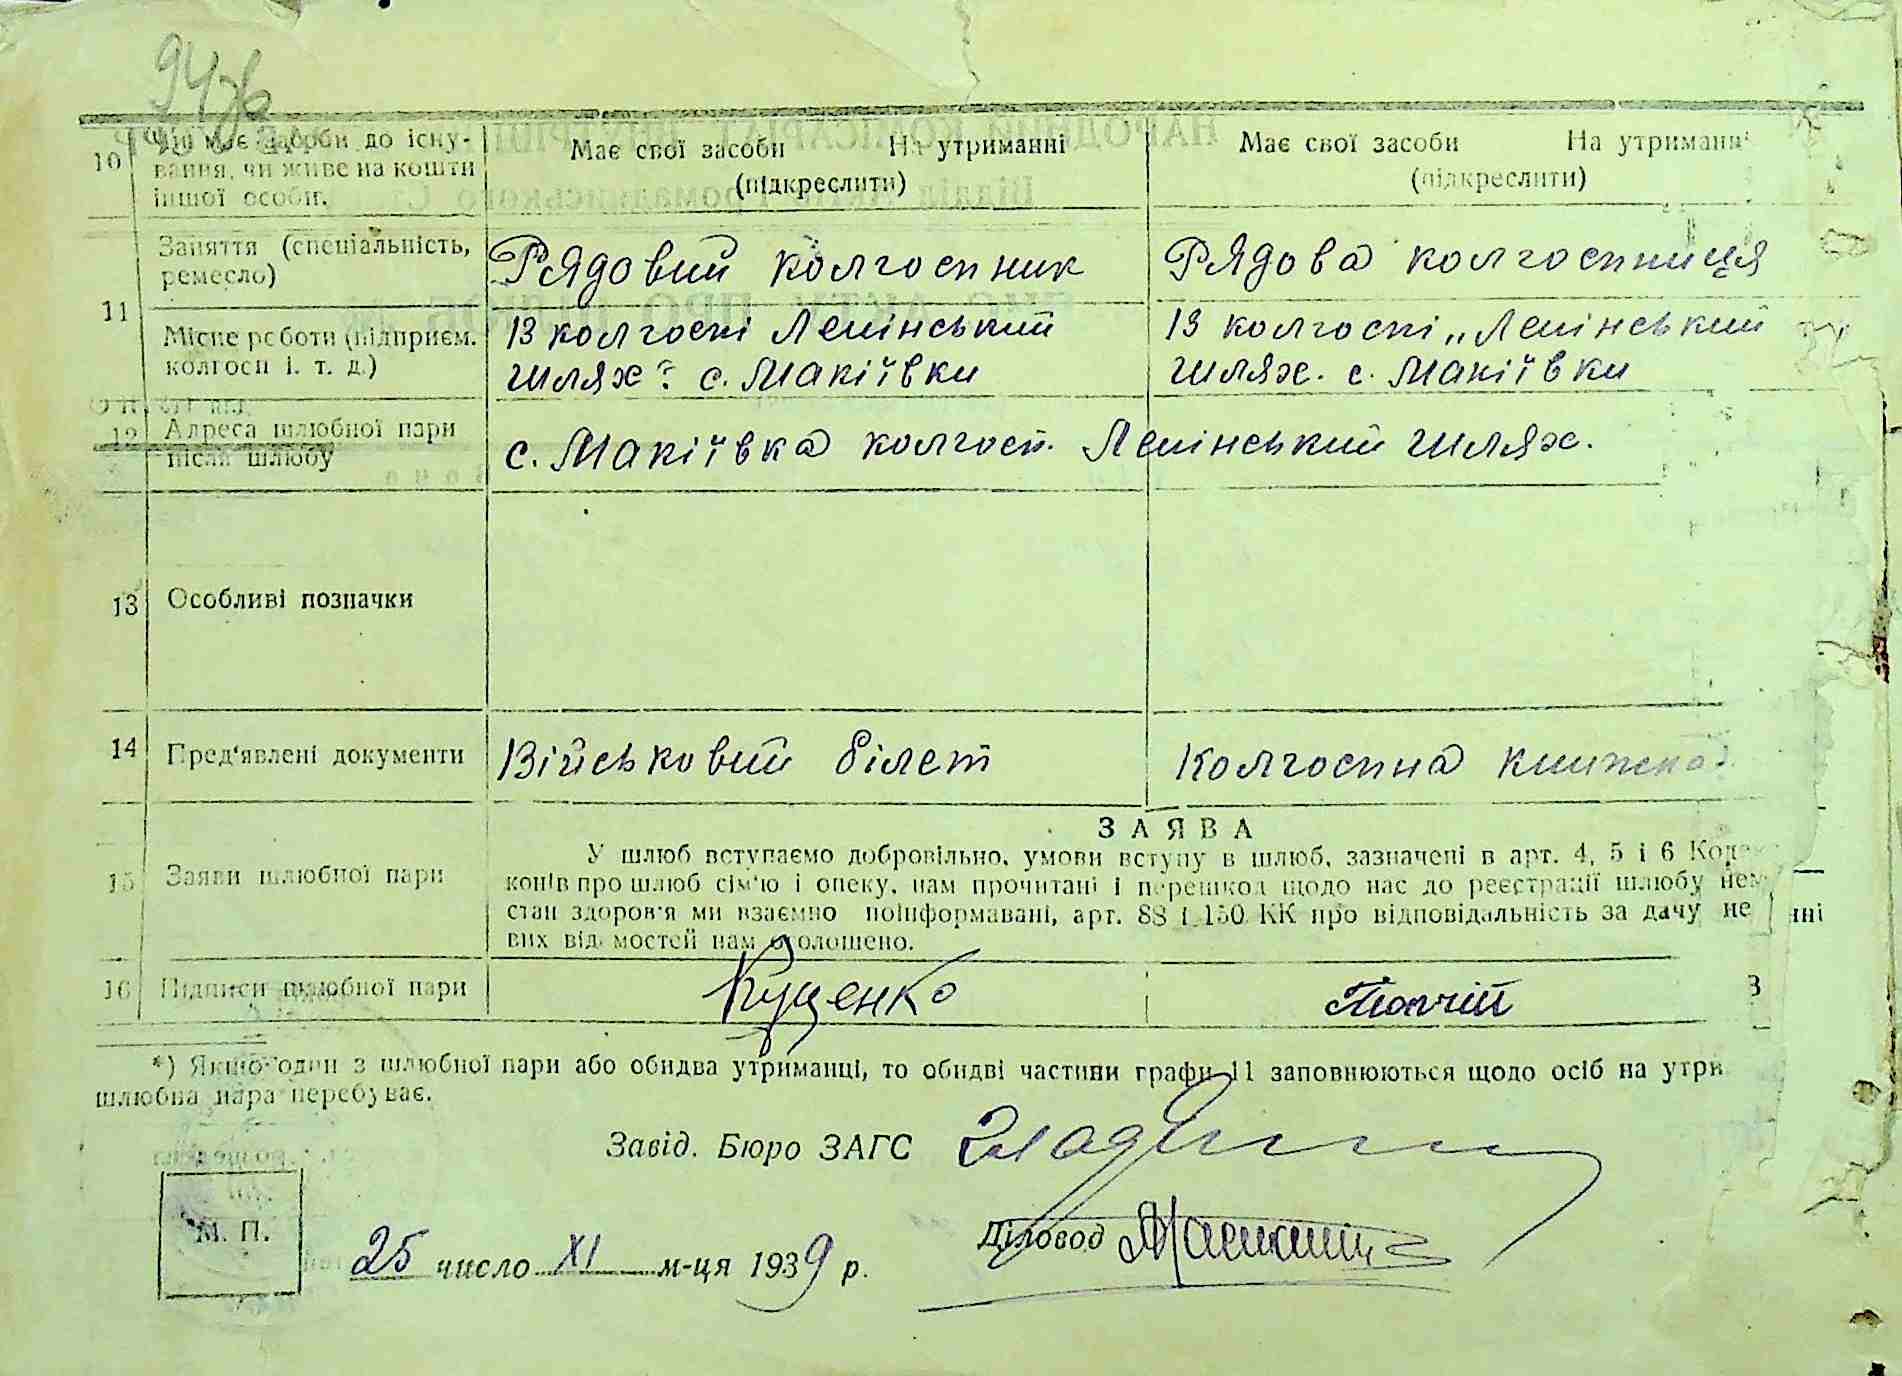 10 Чи має засоби до існу- Має свої засоби На утриманні Має свої засоби На утриманні
вання, чи живе на кошти (підкреслити) (підкреслити)
іншої особи.
Заняття (спеціальність, Рядовий колгоспник Рядова колгоспниця
ремесло)
11
Місце роботи (підприєм. В колгоспі Ленінський В колгоспі „Ленінський
колгосп і. т. д.) шлях" с. Макіївки шлях. с. Макіївки
12 Адреса шлюбної пари с. Макіївка колгосп. Ленінський шлях.
після шлюбу
13 Особливі позначки
14 Пред'явлені документи Військовий білет Колгоспна книжка
ЗАЯВА
15 Заяви шлюбної пари У шлюб вступаємо добровільно, умови вступу в шлюб, зазначені в арт. 4, 5 і 6 Коде
конів про шлюб сім'ю і опеку, нам прочитані і перешкод щодо нас до реєстрації шлюбу нем
стан здоров'я ми взаємно поінформавані, арт. 88 і 150 КК про відповідальність за дачу не
вих відомостей нам оголошено.
16 Підписи шлюбної пари Куценко
*) Якщо один з шлюбної пари або обидва утриманці, то обидві частини графи 11 заповнюються щодо осіб на утри
шлюбна пара перебуває.
Завід. Бюро ЗАГС
М. П.
Діловод
25 число XI м-ця 1939 р.